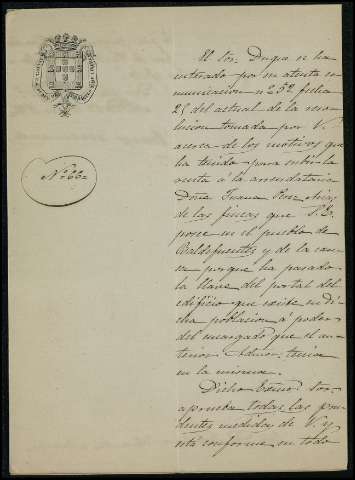 Nº 662
El Sor. Duque se ha
enterado por su atenta co-
municacion nº 252 fecha
25 del actual de la reso-
lucion tomada por V.
acerca de los motivos que
ha tenido para subir la
renta á la arrendataria
Doña Juana Rosa
de las fincas que S. E.
posee en el pueblo de
Baldefuentes y de la cau-
sa porque ha pasado
la llave del portal del
edificio que existe en di-
cha poblacion á poder
del encargado que el an-
terior Admor. tenia
en la misma.
Dicho Exmo. Sor.
aprueba todas las pru-
dentes medidas de V. y
está conforme en todo